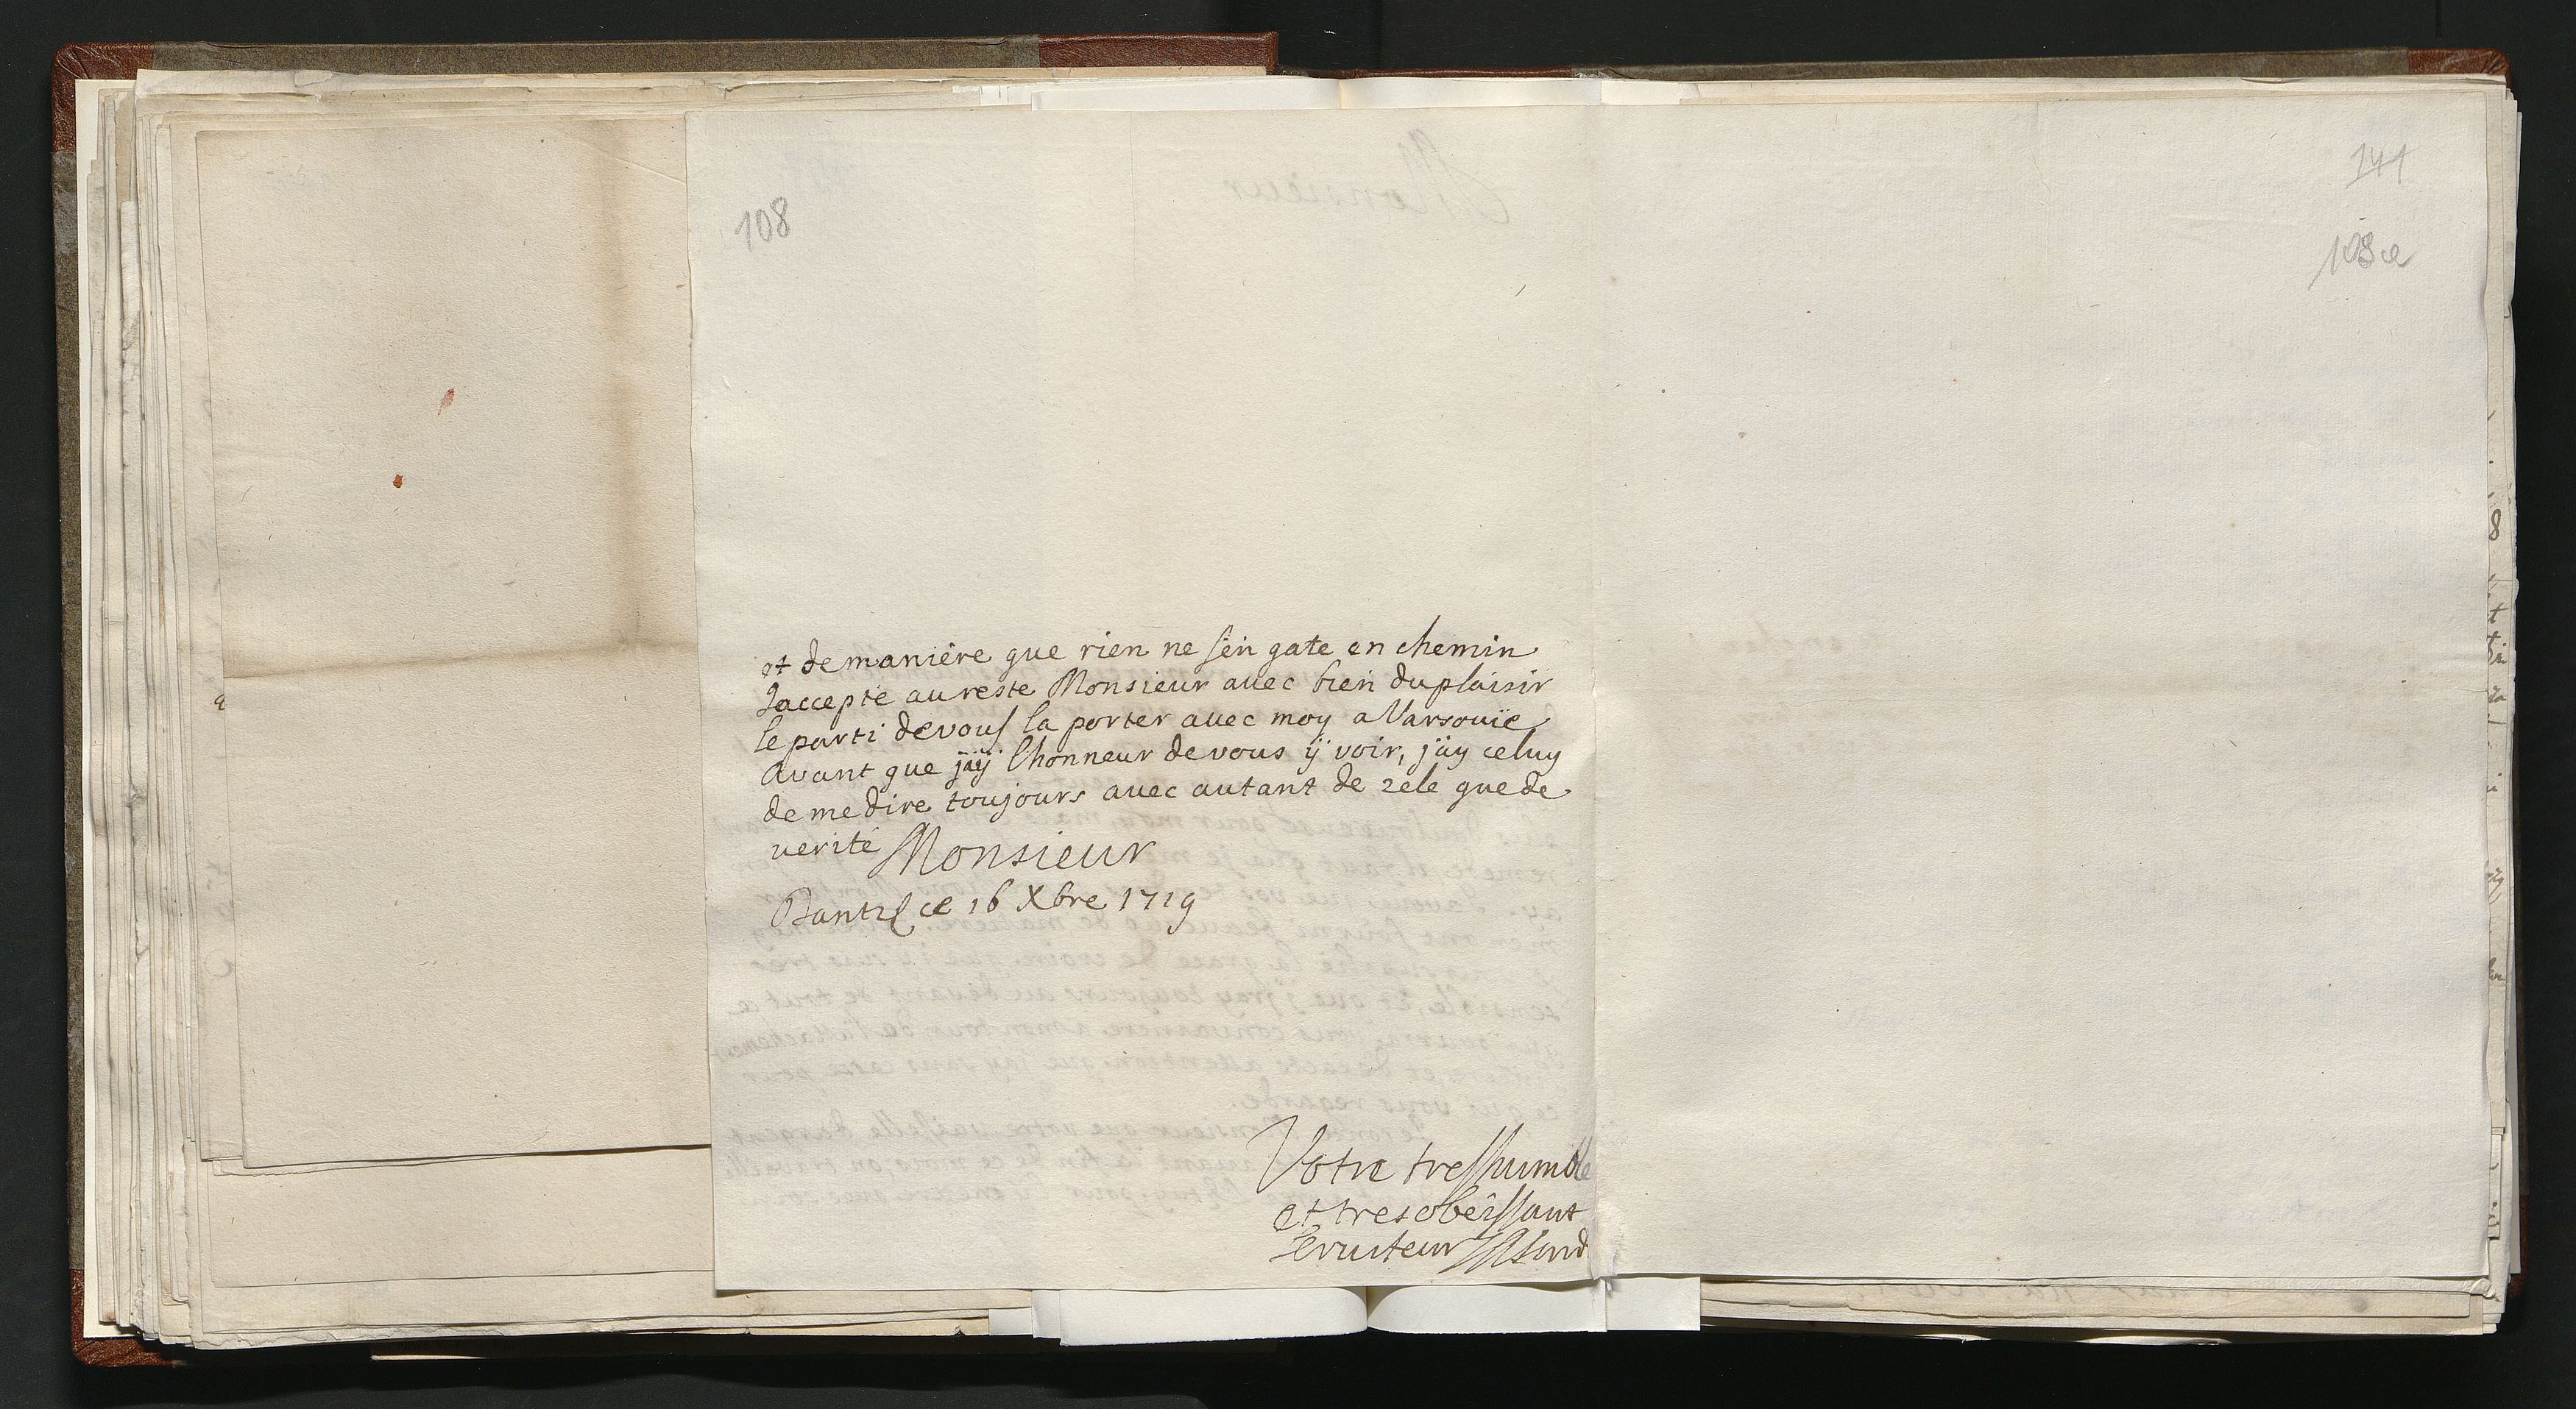 108
141
108a
et de maniére que rien ne s'en gate en chemin
Jaccepte au reste Monsieur avec bien du plaisir
le parti de vous la porter avec moy a Varsovie
Avant que jäÿ lhonneur de vous ÿ voir, jäy celuy
de me dire toujours avec autant de zele que de
verité Monsieur
Dantzl ce 16 Xbre 1719
Votre tresshumble
et tres obeissant
serviteur